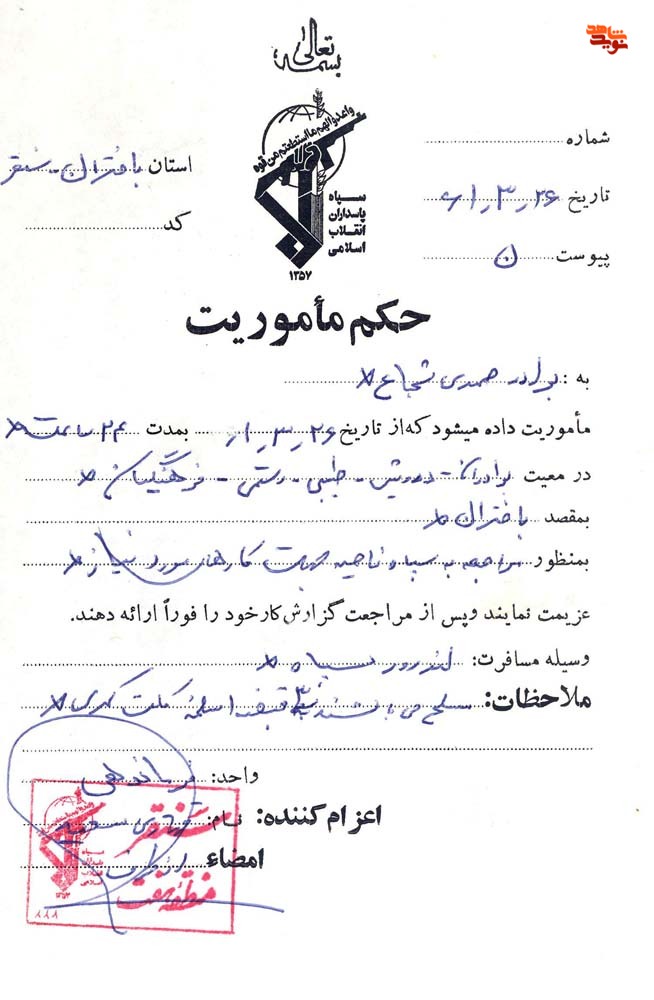 نوید شاهد
بسمه تعالی
واعدوا لهم ما استطعتم من قوة
سپاه
پاسداران
انقلاب
اسلامی
۱۳۵۷
شماره
استان باختران - سنقر
تاریخ ۶۱٫۳٫۲۶
کد
پیوست ن
حکم مأموریت
به : برادر صمدی شجاع
مأموریت داده میشود که از تاریخ ۶۱٫۳٫۲۶ بمدت ۲۴ ساعت
در معیت برادران - درویش - - رستمی - فرهنگیان
بمقصد باختران
بمنظور مراجعه به سپاه ناحیه جهت کارهای مورد نیاز
عزیمت نمایند وپس از مراجعت گزارش کار خود را فوراً ارائه دهند.
وسیله مسافرت: لندرور سپاه
ملاحظات: مسلح می باشند قبضه اسلحه کمری
واحد: فرماندهی
اعزام کننده: نام:
امضاء
سپاه
پاسداران
انقلاب
اسلامی
سنقر
منطقه هفت